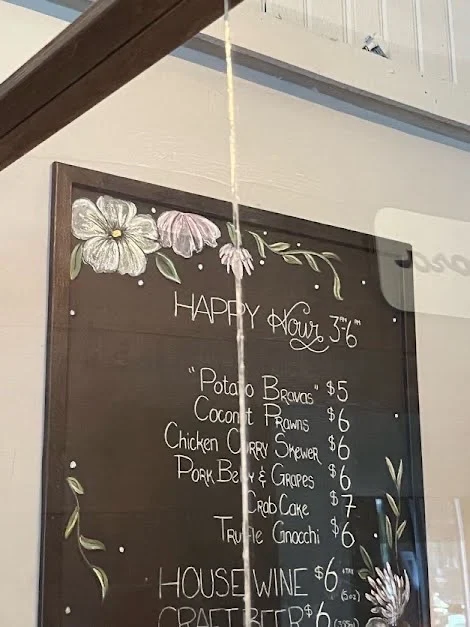 HAPPY Hour 3PM-6PM
"Potato Bravas" $5
Coconut Prawns $6
Chicken Curry Skewer $6
Pork Belly & Grapes $6
Crab Cake $7
Truffle Gnocchi $6
HOUSE WINE $6 (5oz)
CRAFT BEER $6